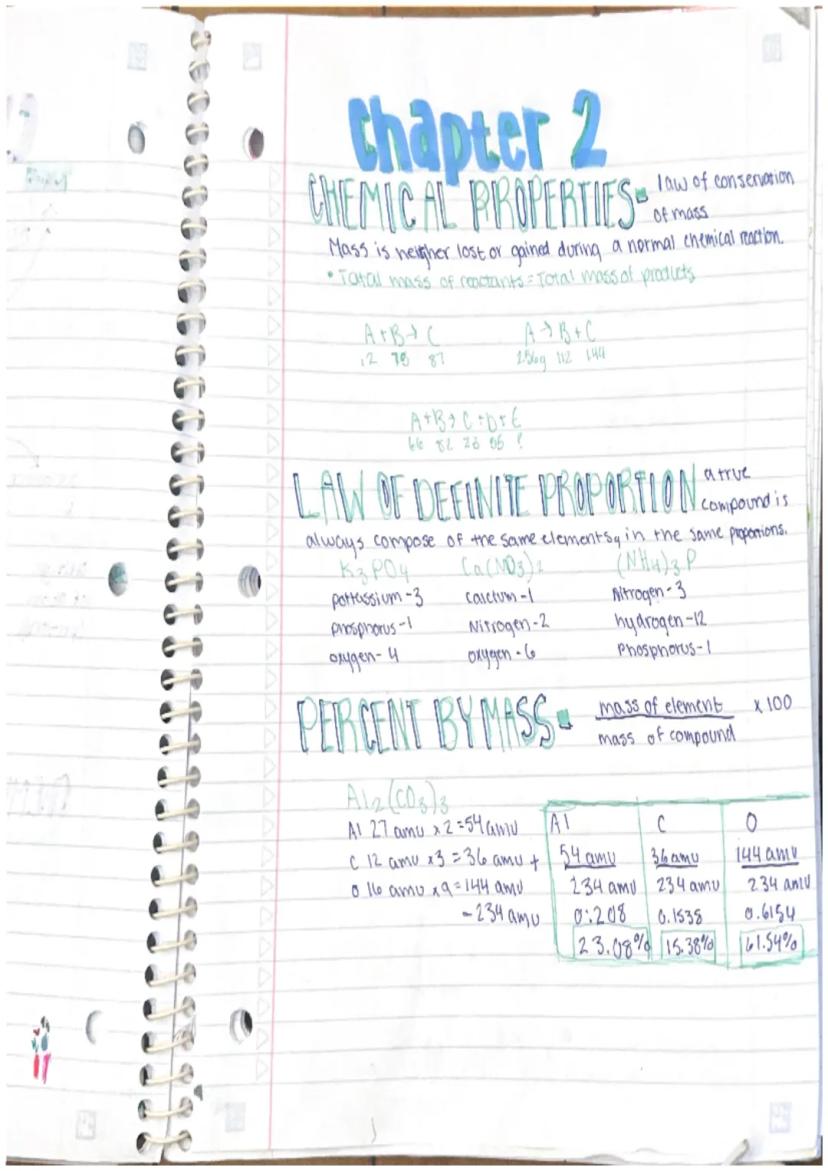 Chapter 2
CHEMICAL PROPERTIES- law of conservation
of mass
Mass is neither lost or gained during a normal chemical reaction.
• Total mass of reactants = Total mass of products
A + B → C
12 75 87
A → B + C
256g 112 144
A + B → C + D + E
66 82 23 55 ?
LAW OF DEFINITE PROPORTION a true
compound is
always compose of the same elements, in the same proportions.
K3PO4 Ca(NO3)2 (NH4)3P
pottassium-3 calcium-1 Nitrogen-3
phosphorus-1 Nitrogen-2 hydrogen-12
oxygen-4 oxygen-6 Phosphorus-1
PERCENT BY MASS- mass of element x 100
mass of compound
Al2(CO3)3
Al 27 amu x 2 = 54 amu
C 12 amu x3 = 36 amu +
O 16 amu x9 = 144 amu
= 234 amu
Al C O
54 amu 36 amu 144 amu
234 amu 234 amu 234 amu
0.208 0.1538 0.6154
23.08% 15.38% 61.54%